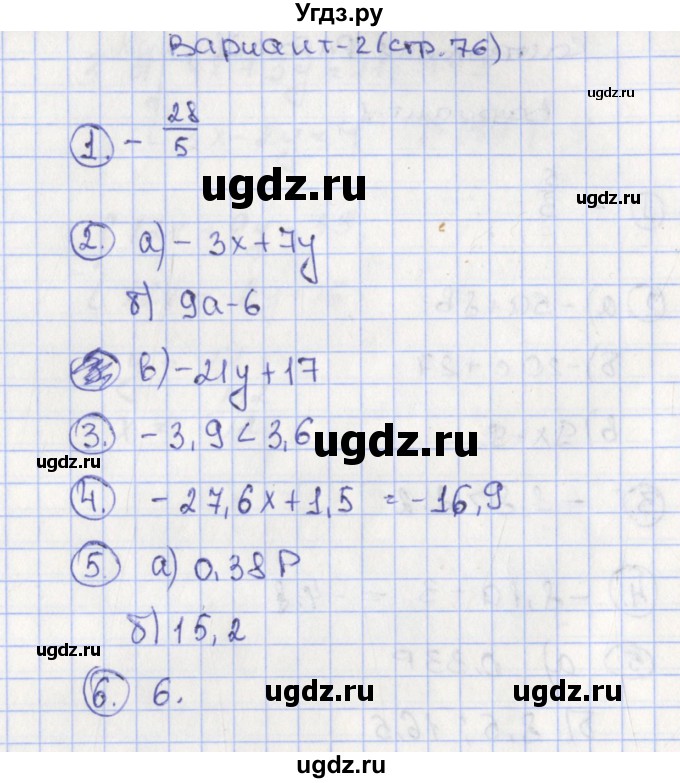 Угдз.ру
Вариант-2 (стр. 76)
1. - 28/5
ugdz.ru
ugdz.ru
2. а) - 3x + 7y
б) 9a - 6
в) - 21y + 17
3. - 3,9 < 3,6
ugdz.ru
ugdz.ru
4. - 27,6x + 1,5 = - 16,9
5. а) 0,38 P
б) 15,2
ugdz.ru
ugdz.ru
6. 6.
ugdz.ru
ugdz.ru
Угдз.ру